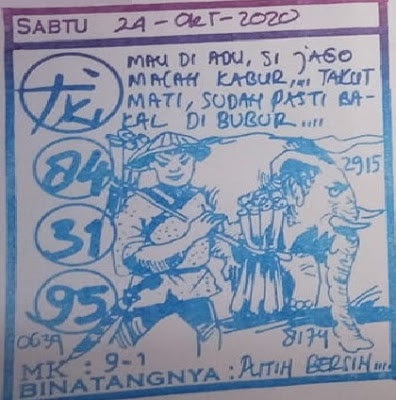 SABTU 24-OKT-2020
MAU DI ADU, SI JAGO
MALAH KABUR,... TAKUT
MATI, SUDAH PASTI BA-
KAL DI BUBUR....
84
2915
31
95
0639
8174
MK : 9-1
BINATANGNYA : PUTIH BERSIH...